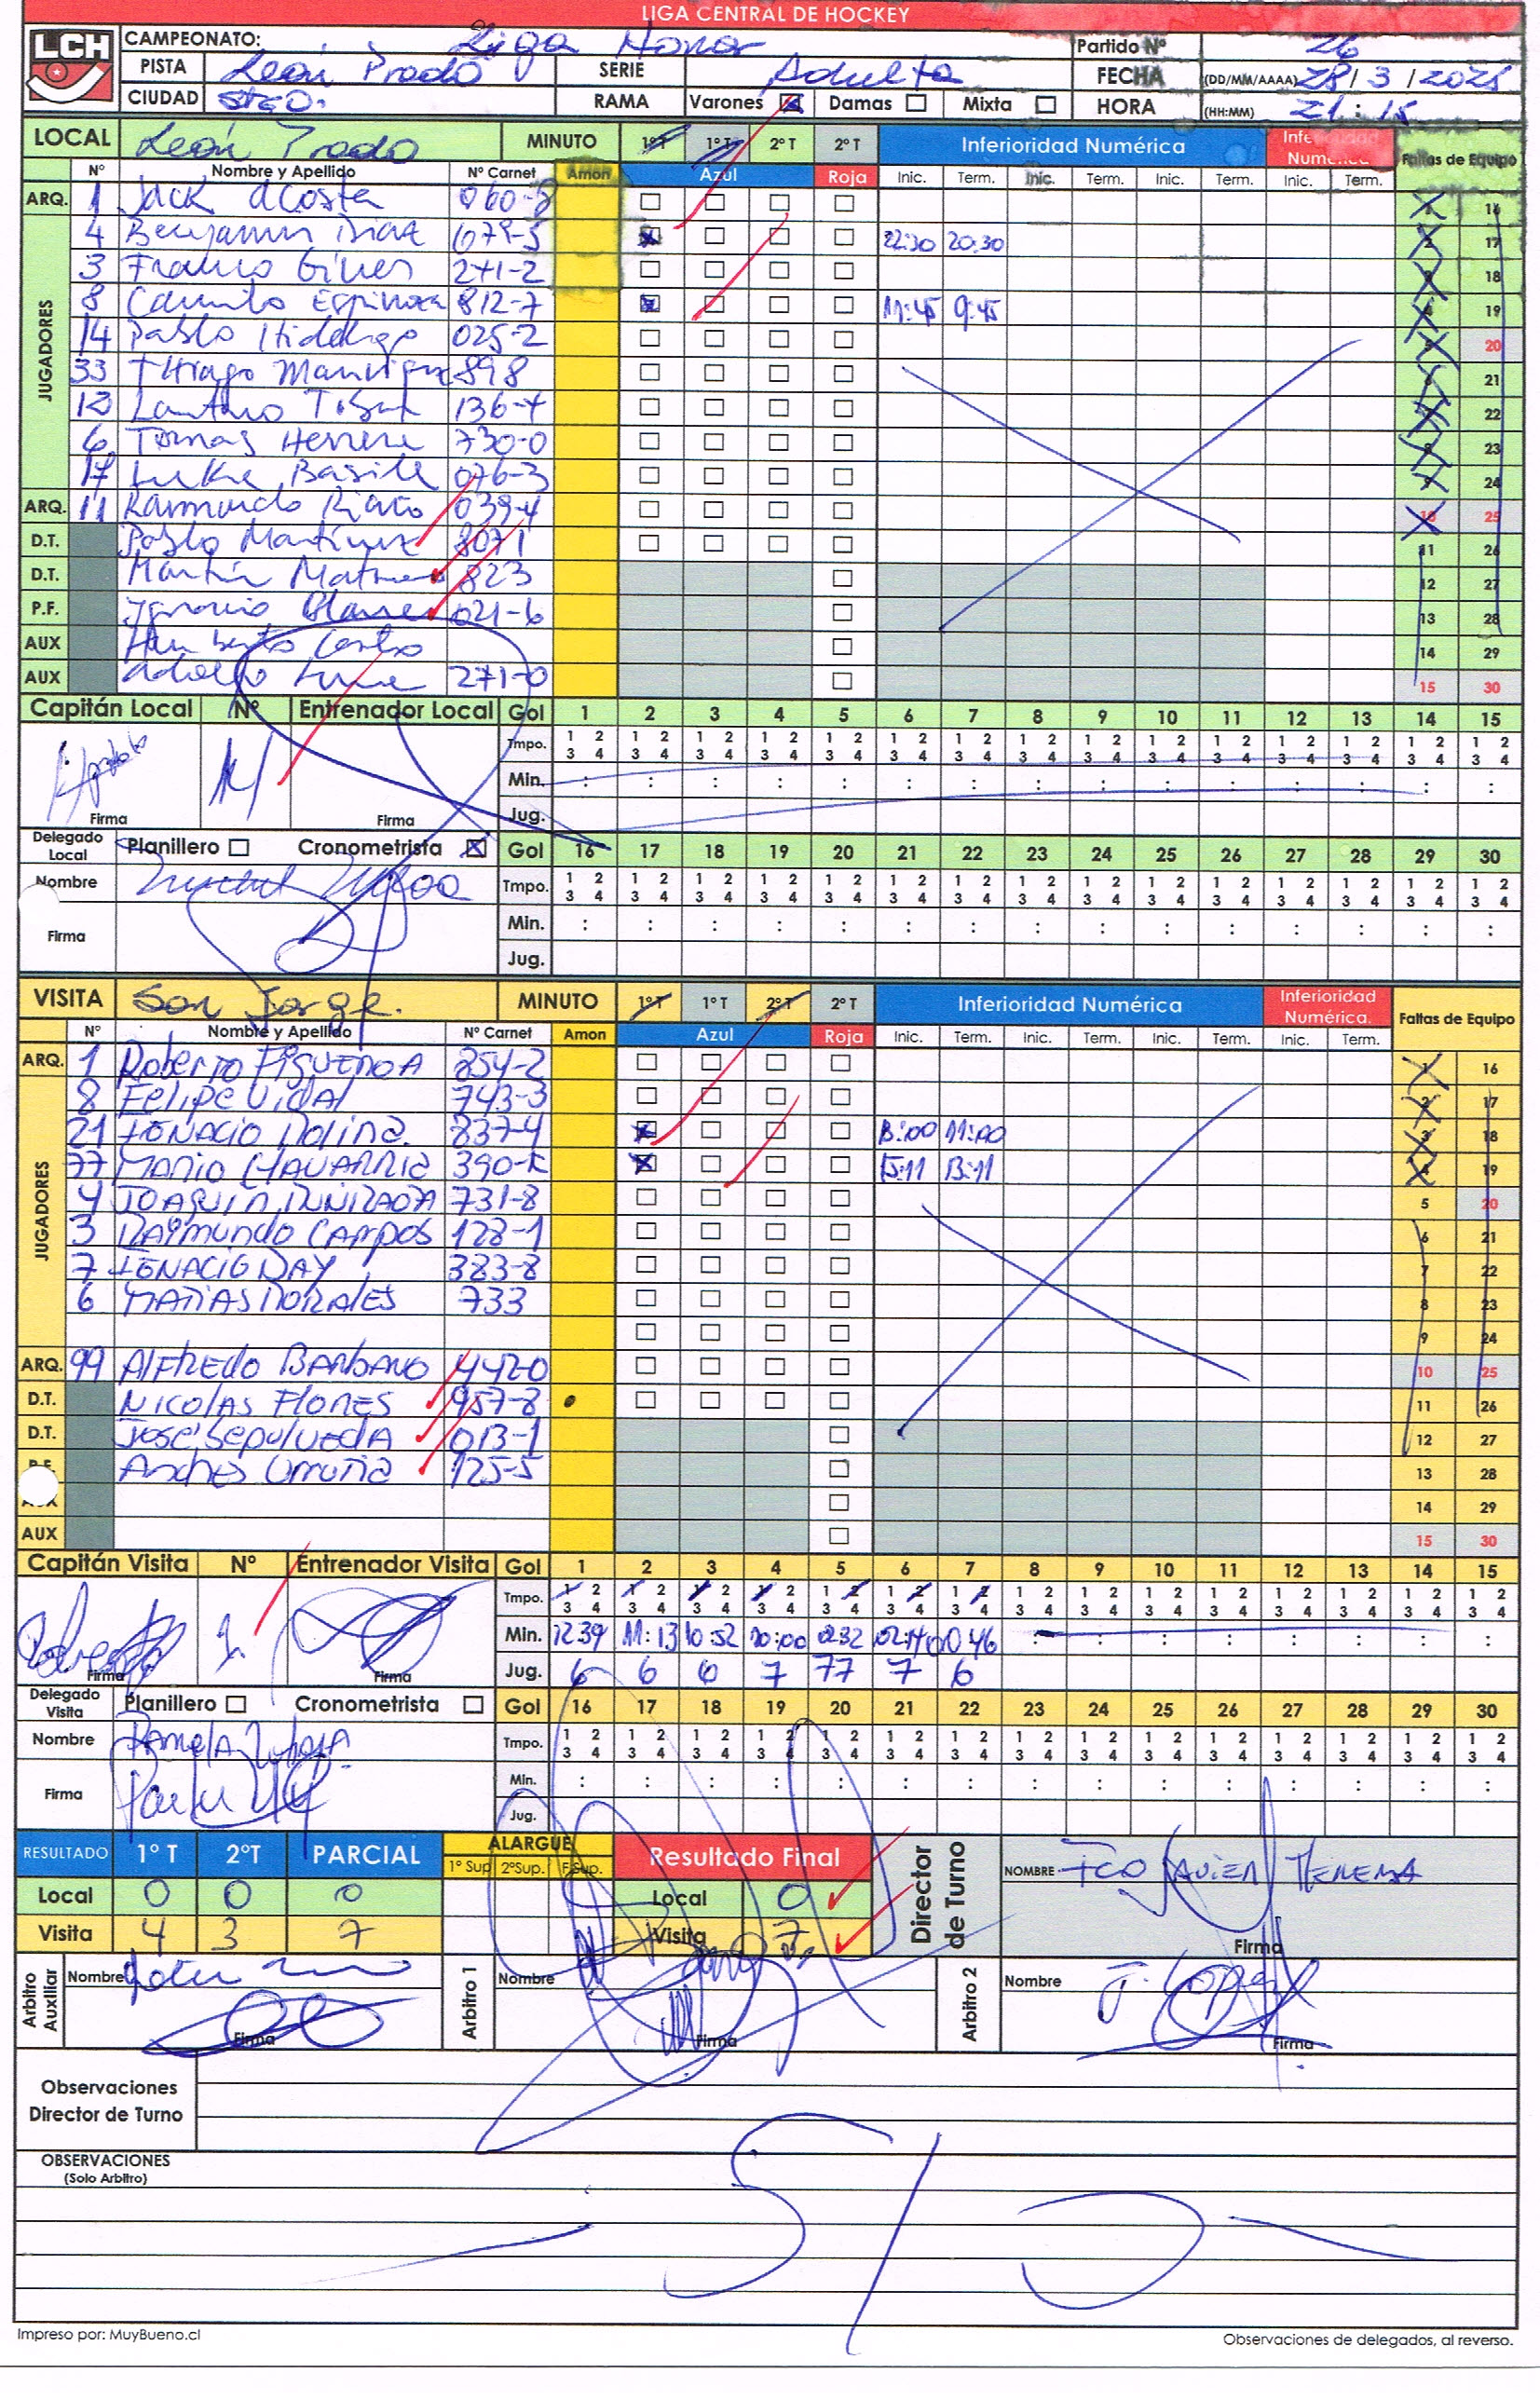 LIGA CENTRAL DE HOCKEY
LCH
CAMPEONATO: Liga Honor Partido Nº 26
PISTA León Prado SERIE Adulta FECHA (DD/MM/AAAA) 28/3/2025
CIUDAD STGO. RAMA Varones Damas Mixta HORA (HH:MM) 21:15
LOCAL León Prado MINUTO 1º T 1º T 2º T 2º T Inferioridad Numérica Faltas de Equipo
Nº Nombre y Apellido Nº Carnet Amon Azul Roja Inic. Term. Inic. Term. Inic. Term. Inic. Term.
ARQ. 1 Jack Acosta 060-8 16
JUGADORES
4 Benjamin Diaz 079-5 22:30 20:30 17
3 Franco 241-2 18
8 Camilo Espinoza 812-7 11:45 9:45 19
14 Pablo Hidalgo 025-2 20
33 Thiago 898 21
136-4 22
6 Tomas Herrera 730-0 23
17 Basile 076-3 24
ARQ. 11 Raimundo 039-4 10 25
D.T. Pablo Martinez 8071 11 26
D.T. Martin 823 12 27
P.F. Ignacio 021-6 13 28
AUX Humberto Castro 14 29
AUX Adolfo 271-0 15 30
Capitán Local Nº Entrenador Local Gol 1 2 3 4 5 6 7 8 9 10 11 12 13 14 15
Tmpo. 1 2 3 4
Min. : : : : : : : : : : : : : :
Firma Firma Jug.
Delegado Local Planillero Cronometrista Gol 16 17 18 19 20 21 22 23 24 25 26 27 28 29 30
Nombre Tmpo. 1 2 3 4
Firma Min. : : : : : : : : : : : : : : :
Jug.
VISITA San Jorge. MINUTO 1º T 1º T 2º T 2º T Inferioridad Numérica Inferioridad Numérica. Faltas de Equipo
Nº Nombre y Apellido Nº Carnet Amon Azul Roja Inic. Term. Inic. Term. Inic. Term. Inic. Term.
ARQ. 1 Roberto FIGUEROA 854-2 1 16
JUGADORES
8 Felipe Vidal 743-3 2 17
21 IGNACIO Molina. 837-4 13:00 11:00 3 18
77 MARIO CHAVARRIA 390-K 15:11 13:11 4 19
4 JOAQUIN 731-8 5 20
3 RAYMUNDO CAMPOS 128-1 6 21
7 IGNACIO DAY 383-8 7 22
6 MATIAS MORALES 733 8 23
9 24
ARQ. 99 ALFREDO BARBANO 442-0 10 25
D.T. NICOLAS FLORES 957-8 11 26
D.T. JOSE SEPULVEDA 013-1 12 27
Andres Urrutia 125-5 13 28
14 29
AUX 15 30
Capitán Visita Nº Entrenador Visita Gol 1 2 3 4 5 6 7 8 9 10 11 12 13 14 15
Tmpo. 1 2 3 4
Min. 12:39 11:13 10:52 10:00 02:32 02:14 00:46 : : : : : : : :
Firma Firma Jug. 6 6 6 7 77 7 6
Delegado Visita Planillero Cronometrista Gol 16 17 18 19 20 21 22 23 24 25 26 27 28 29 30
Nombre Pamela Tmpo. 1 2 3 4
Firma Min. : : : : : : : : : : : : : : :
Jug.
RESULTADO 1º T 2ºT PARCIAL ALARGUE 1º Sup 2ºSup. F.Sup. Resultado Final Director de Turno NOMBRE FCO JAVIER
Local 0 0 0 Local 0
Visita 4 3 7 Visita 7 Firma
Arbitro Auxiliar Nombre Firma Arbitro 1 Nombre Firma Arbitro 2 Nombre J. Lopez Firma
Observaciones
Director de Turno
OBSERVACIONES
(Solo Arbitro)
S/O
Impreso por: MuyBueno.cl Observaciones de delegados, al reverso.